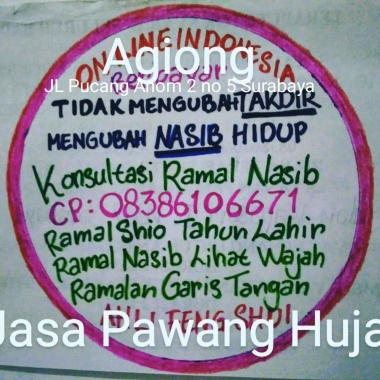 ONLINE INDONESIA
Agiong
Berbayar
JL Pucang Anom 2 no 5 Surabaya
TIDAK MENGUBAH TAKDIR
MENGUBAH NASIB HIDUP
Konsultasi Ramal Nasib
CP: 08386106671
Ramal Shio Tahun Lahir
Ramal Nasib Lihat Wajah
Ramalan Garis Tangan
AHLI FENG SHUI
Jasa Pawang Huja